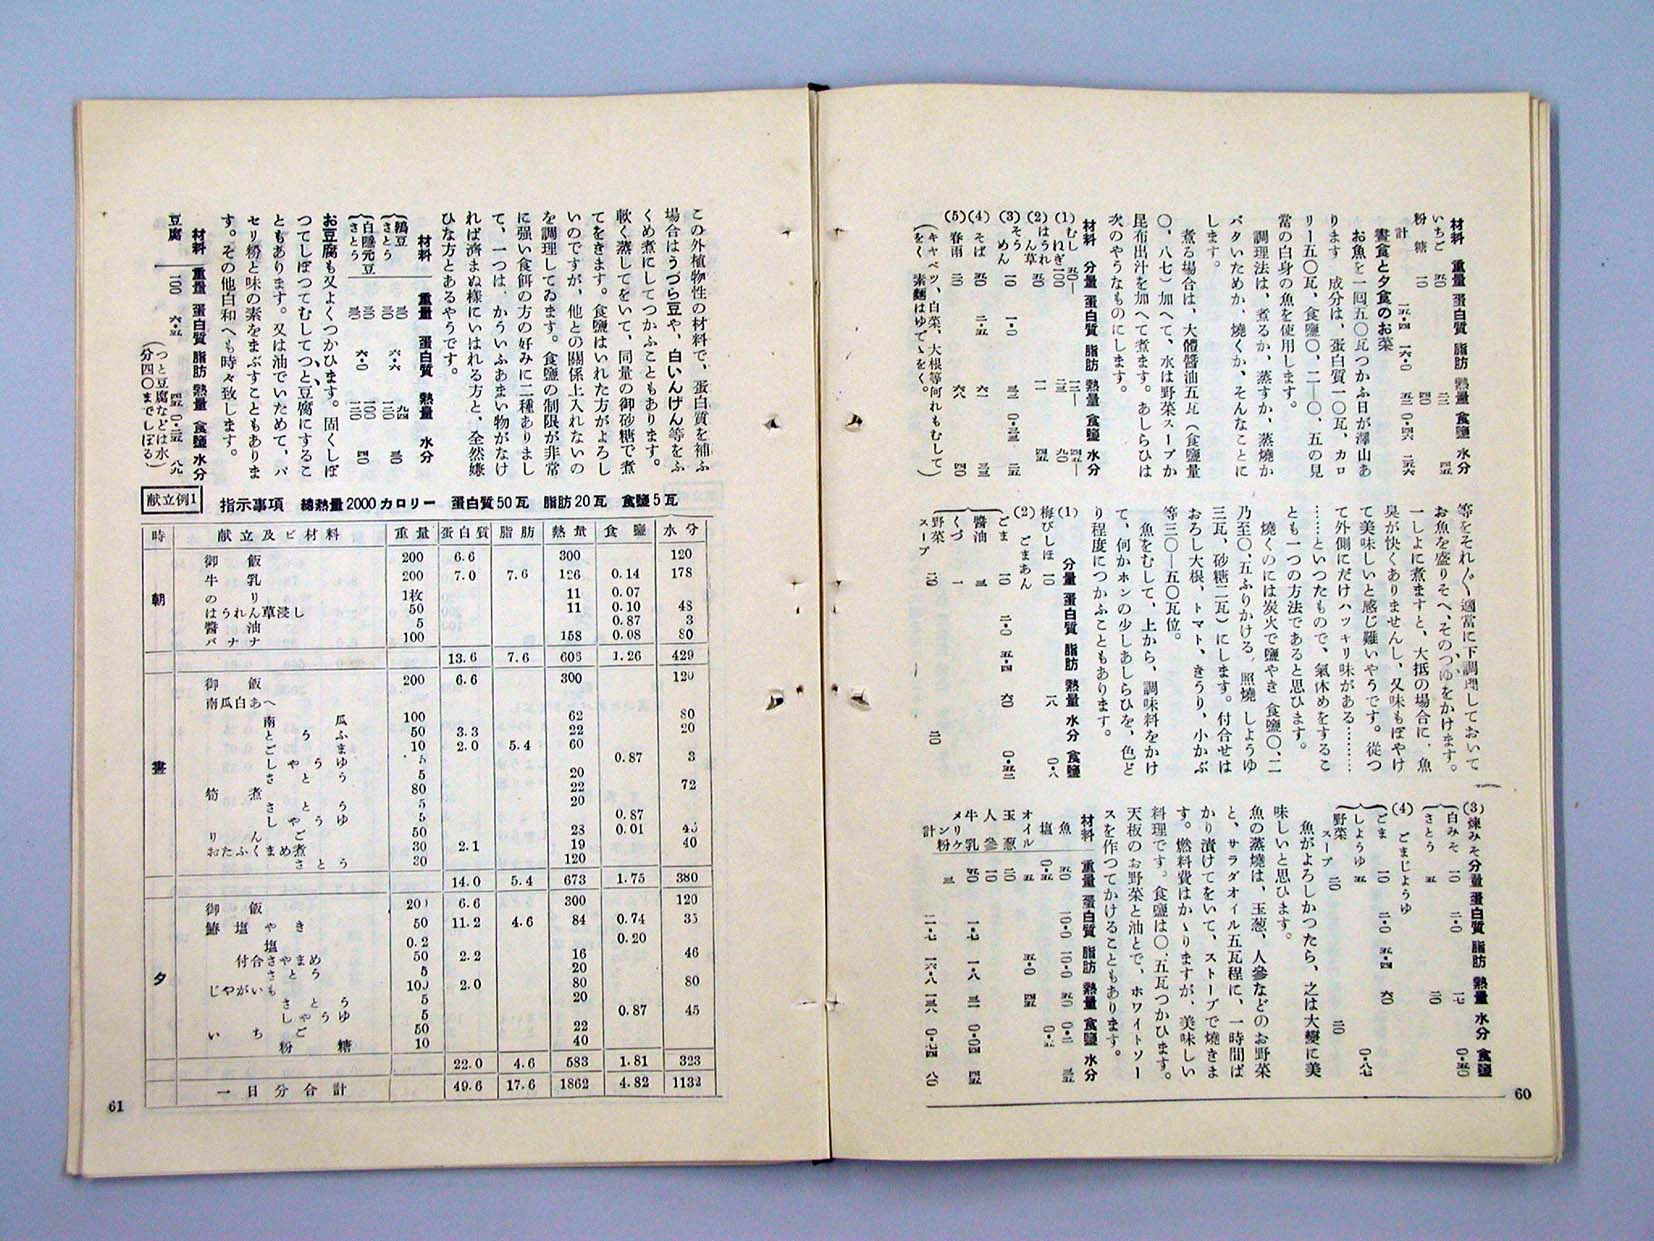 材料 重量 蛋白質 脂肪 熱量 食鹽 水分
いちご 五〇
粉糖 一〇 四〇
計
晝食と夕食のお菜
お魚を一回五〇瓦つかふ日が澤山あ
ります 成分は、蛋白質一〇瓦、カロ
リー五〇瓦、食鹽〇、二―〇、五の見
當の白身の魚を使用します。
調理法は、煮るか、蒸すか、蒸燒か
バタいためか、燒くか、そんなことに
します。
煮る場合は、大體醬油五瓦(食鹽量
〇、八七)加へて、水は野菜スープか
昆布出汁を加へて煮ます。あしらひは
次のやうなものにします。
材料 分量 蛋白質 脂肪 熱量 食鹽 水分
(1) むしねぎ
(2) はうれん草 五〇
(3) そうめん 一〇 一・〇
(4) そば 五〇 二・五
(5) 春雨
(キャベツ、白菜、大根等何れもむして
をく 素麵はゆでゝをく。)
等をそれ〴〵適當に下調理しておいて
お魚を盛りそへ、そのつゆをかけます。
一しよに煮ますと、大抵の場合に、魚
臭が快くありませんし、又味もぼやけ
て美味しいと感じ難いやうです。從つ
て外側にだけハッキリ味がある………
……といつたもので、氣休めをするこ
とも一つの方法であると思ひます。
燒くのには炭火で鹽やき 食鹽〇、二
乃至〇、五ふりかける。照燒 しようゆ
三瓦、砂糖二瓦)にします。付合せは
おろし大根、トマト、きうり、小かぶ
等三〇―五〇瓦位。
魚をむして、上から、調味料をかけ
て、何かホンの少しあしらひを、色ど
り程度につかふこともあります。
分量 蛋白質 脂肪 熱量 水分 食鹽
(1) 梅びしほ 一〇 一八 〇・八
(2) ごまあん
ごま 一〇 二・〇 五・四 六〇
醬油 三 〇・五二
くづ 一
野菜スープ 二〇 二〇
(3) 煉みそ 分量 蛋白質 脂肪 熱量 水分 食鹽
白みそ 一〇 一七 〇・五〇
さとう 五 二〇
(4) ごまじようゆ
ごま 一〇 二・〇 五・四 六〇
しようゆ 五 〇・八七
野菜スープ 二〇 二〇
魚がよろしかつたら、之は大變に美
味しいと思ひます。
魚の蒸燒は、玉葱、人參などのお野菜
と、サラダオイル五瓦程に、一時間ば
かり漬けてをいて、ストーブで燒きま
す。燃料費はかゝりますが、美味しい
料理です。食鹽は〇、五瓦つかひます。
天板のお野菜と油とで、ホワイトソー
スを作つてかけることもあります。
材料 重量 蛋白質 脂肪 熱量 食鹽 水分
魚 五〇 一〇・〇 五〇 〇・二 三五
鹽 〇・五 〇・五
オイル 五 五・〇 四五
玉葱 二〇
人參 一〇
牛乳 五〇 一・七 一・八 三一 〇・〇四 四五
メリケン粉 三
計 八〇
60
この外植物性の材料で、蛋白質を補ふ
場合はうづら豆や、白いんげん等をふ
くめ煮にしてつかふこともあります。
軟く蒸してをいて、同量の御砂糖で煮
てをきます。食鹽はいれた方がよろし
いのですが、他との關係上入れないの
を調理してゐます。食鹽の制限が非常
に强い食餌の方の好みに二種ありまし
て、一つは、かういふあまい物がなけ
れば濟まぬ樣にいはれる方と、全然嫌
ひな方とあるやうです。
材料 重量 蛋白質 熱量 水分
鶉豆 三〇 六・六 九四 三〇
さとう
白隱元豆 三〇 六・〇 一〇〇 四〇
さとう
お豆腐も又よくつかひます。固くしぼ
つてしぼつてむしてつと豆腐にするこ
ともあります。又は油でいためて、パ
セリ粉と味の素をまぶすこともありま
す。その他白和へも時々致します。
材料 重量 蛋白質 脂肪 熱量 食鹽 水分
豆腐 一〇〇 六・五 八九
(つと豆腐などは水
分四〇までしぼる)
献立例1 指示事項 總熱量2000カロリー 蛋白質50瓦 脂肪20瓦 食鹽5瓦
時 献立及ビ材料 重量 蛋白質 脂肪 熱量 食鹽 水分
朝
御飯 200 6.6 300 120
牛乳 200 7.0 7.6 126 0.14 178
のり 1枚 11 0.07
はうれん草浸し 50 11 0.10 48
醬油 5 0.87 3
バナナ 100 158 0.08 80
13.6 7.6 606 1.26 429
晝
御飯 200 6.6 300 120
南瓜白あへ
南瓜 100 62 80
とうふ 50 3.3 22 20
ごま 10 2.0 5.4 60
しやうゆ 5 0.87 3
さとう 5 20
筍煮 80 22 72
さとう 5 20
しやうゆ 5 0.87
りんご 50 23 0.01 43
おたふくまめ煮 30 2.1 19 40
さとう 30 120
14.0 5.4 673 1.75 380
夕
御飯 200 6.6 300 120
鰆塩やき 50 11.2 4.6 84 0.74 35
塩 0.2 0.20
付合さやまめ 50 2.2 16 46
さとう 5 20
じやがいも 100 2.0 80 80
さとう 5 20
しやうゆ 5 0.87 45
いちご 50 22
粉糖 10 40
22.0 4.6 583 1.81 323
一日分合計 49.6 17.6 1862 4.82 1132
61